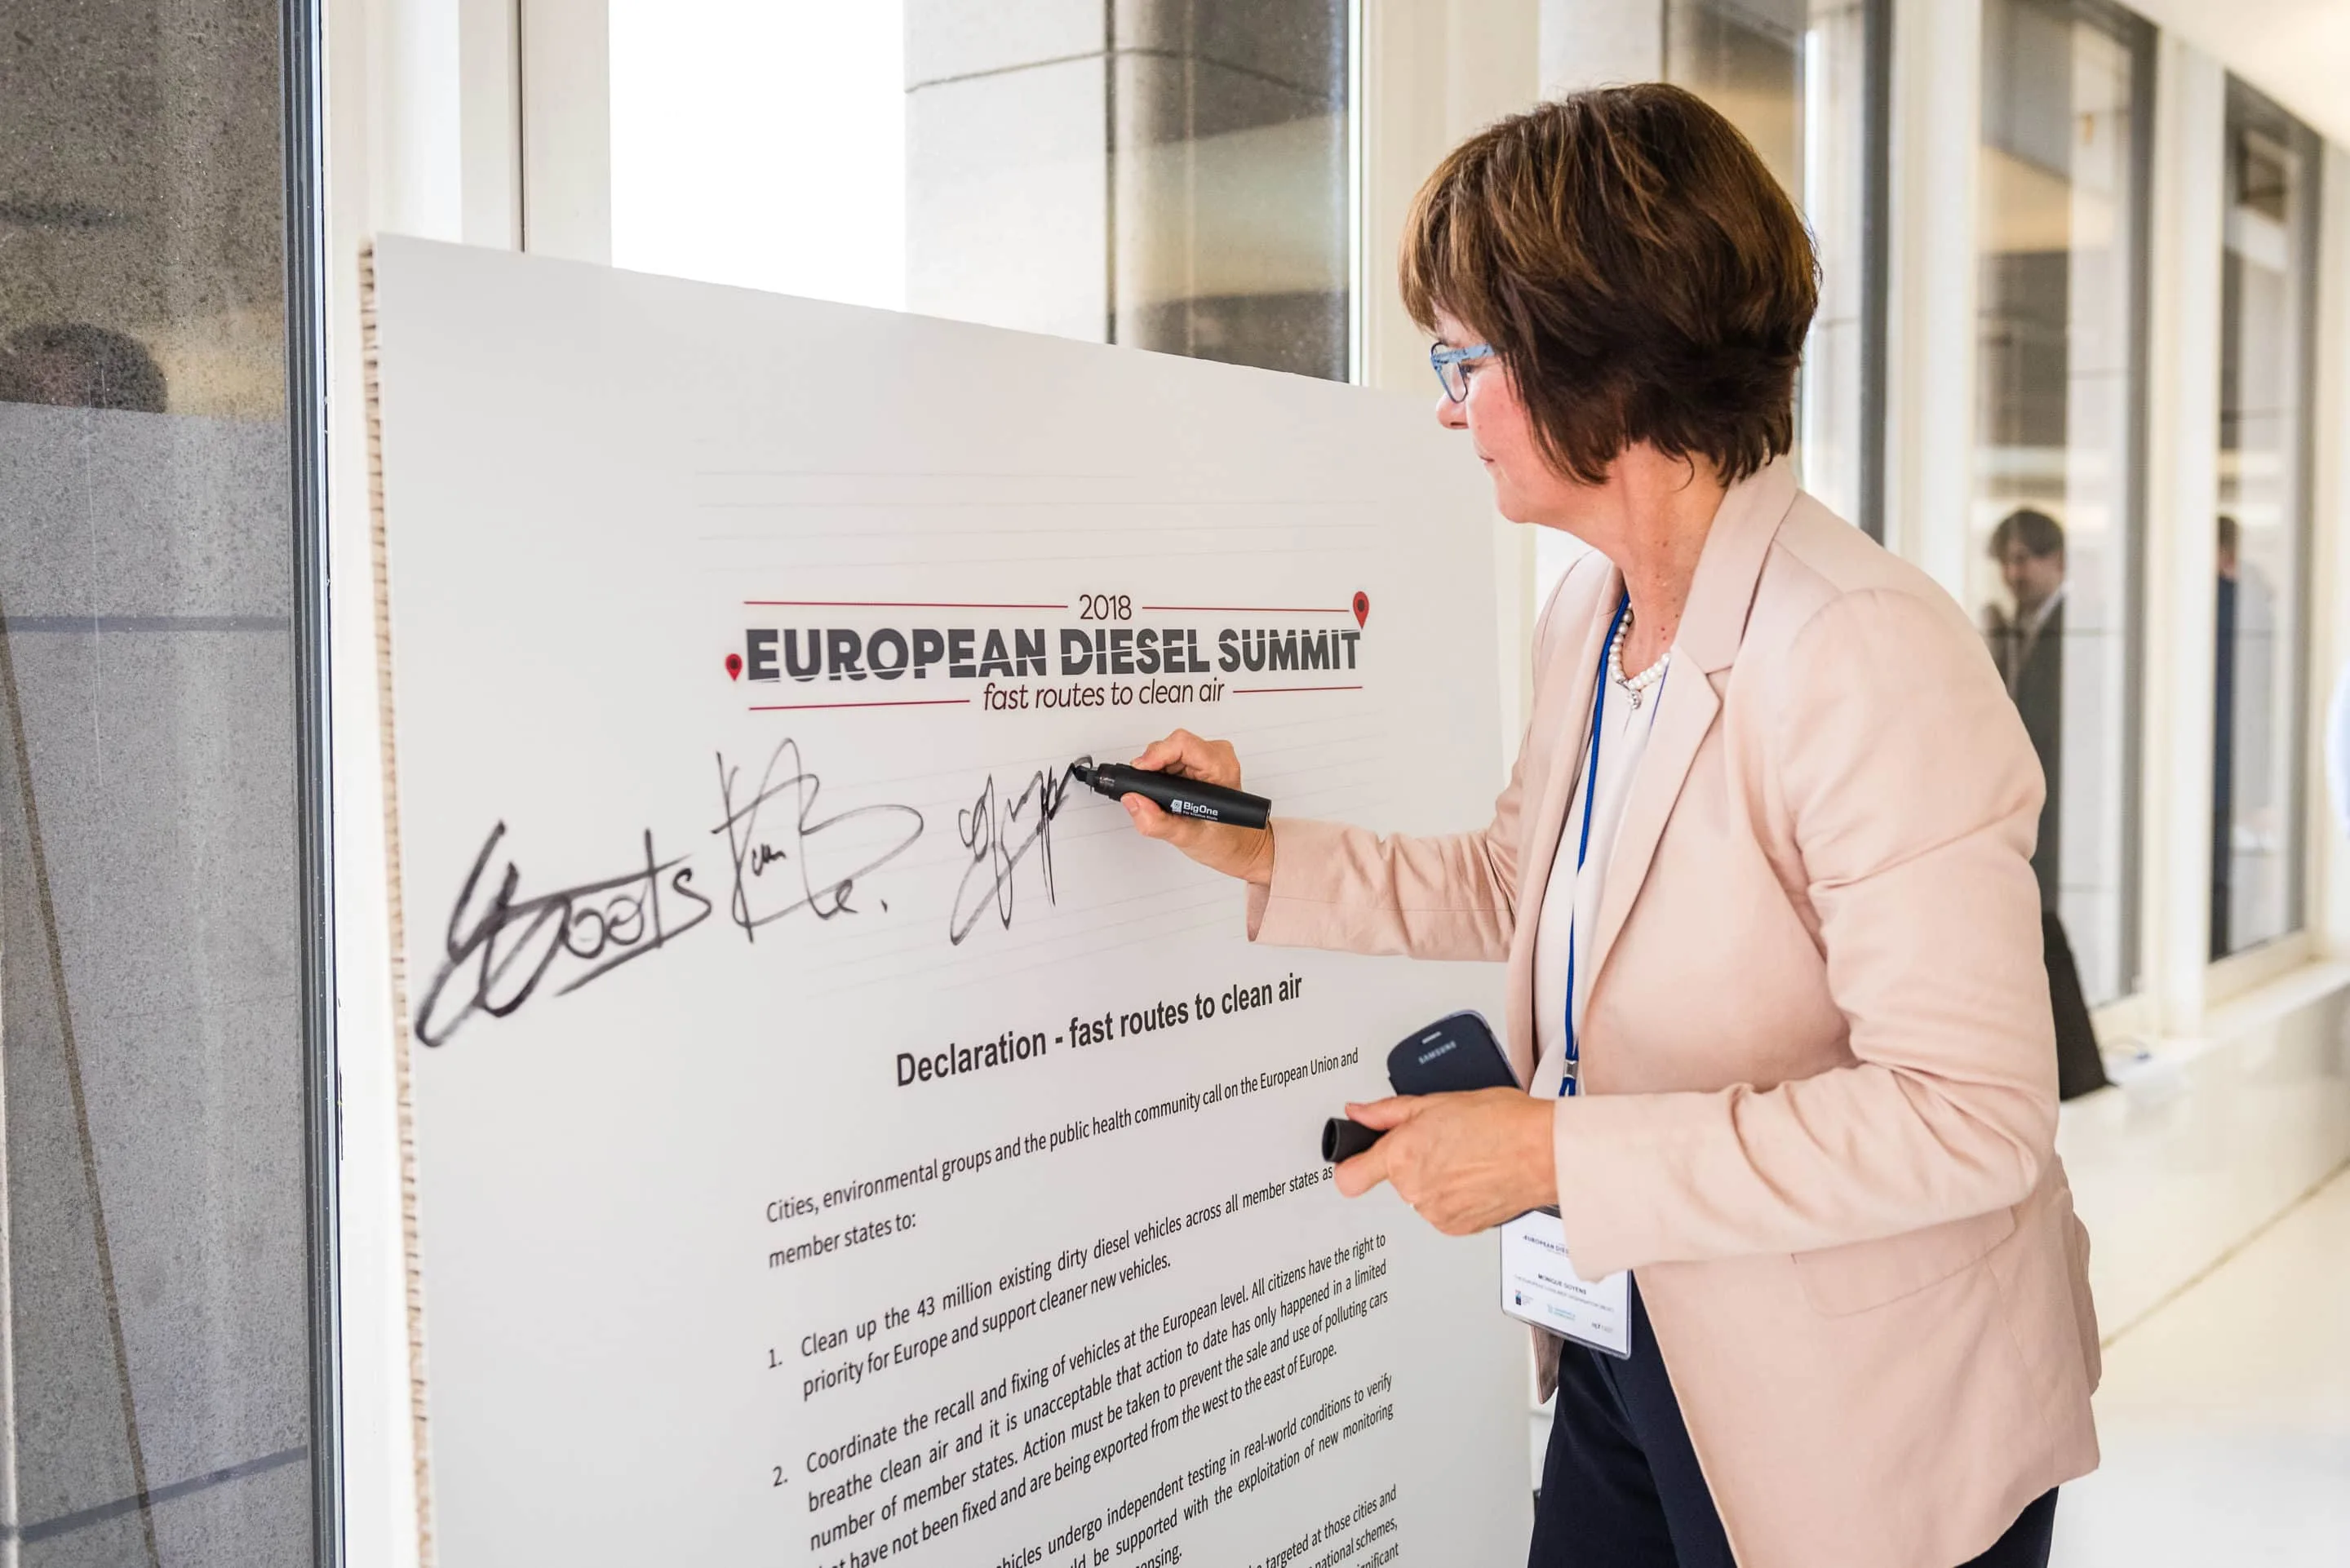 2018
EUROPEAN DIESEL SUMMIT
fast routes to clean air
BigOne
Declaration - fast routes to clean air
Cities, environmental groups and the public health community call on the European Union and
member states to:
1. Clean up the 43 million existing dirty diesel vehicles across all member states as
priority for Europe and support cleaner new vehicles.
2. Coordinate the recall and fixing of vehicles at the European level. All citizens have the right to
breathe clean air and it is unacceptable that action to date has only happened in a limited
number of member states. Action must be taken to prevent the sale and use of polluting cars
have not been fixed and are being exported from the west to the east of Europe.
undergo independent testing in real-world conditions to verify
be supported with the exploitation of new monitoring
targeted at those cities and
national schemes,
SAMSUNG
MONIQUE GOYENS